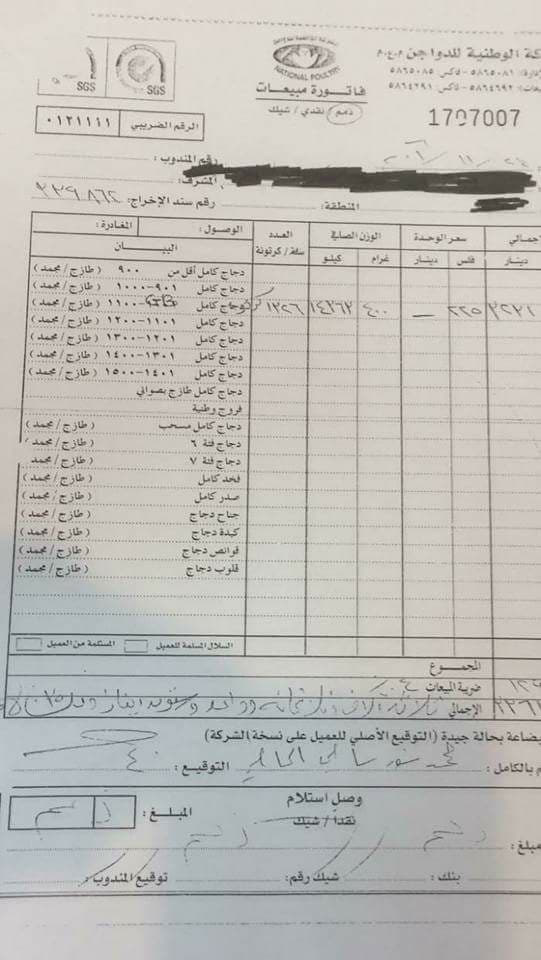 SGS SGS
NATIONAL POULTRY
كة الوطنية للدواجن م.ع.م
٥٨٦٥٠٨١ - فاكس ٥٨٦٥٠٨٥
٥٨٦٤٦٩٢ - فاكس ٥٨٦٤٢٩١
فاتورة مبيعات
ذمم نقدي / شيك
1707007
الرقم الضريبي ٠١٢١١١١
رقم المندوب :
المشرف :
المنطقة :
رقم سند الإخراج : ٢٢٩٨٦٢
الوصول : المغادرة : العدد الوزن الصافي سعر الوحدة جمالي
البيان سلة / كرتونة كيلو غرام دينار فلس دينار
دجاج كامل أقل من ٩٠٠ ( طازج / مجمد )
دجاج كامل ٩٠١-١٠٠٠ ( طازج / مجمد )
دجاج كامل ١١٠٠ ( طازج / مجمد ) ١٣٢٦ ١٤٣٦٣ ٤٠٠ — ٢٢٥
دجاج كامل ١١٠١-١٢٠٠ ( طازج / مجمد )
دجاج كامل ١٢٠١-١٣٠٠ ( طازج / مجمد )
دجاج كامل ١٣٠١-١٤٠٠ ( طازج / مجمد )
دجاج كامل ١٤٠١-١٥٠٠ ( طازج / مجمد )
دجاج كامل طازج بصواني
فروج وطنية
دجاج كامل مسحب ( طازج / مجمد )
دجاج فئة ٦ ( طازج / مجمد )
دجاج فئة ٧ ( طازج / مجمد
فخد كامل ( طازج / مجمد )
صدر كامل ( طازج / مجمد )
جناح دجاج ( طازج / مجمد )
كبدة دجاج ( طازج / مجمد )
قوانص دجاج ( طازج / مجمد )
قلوب دجاج ( طازج / مجمد )
السلال المسلمة للعميل المستلمة من العميل
المجموع
ضريبة المبيعات ٤
الإجمالي
بضاعة بحالة جيدة (التوقيع الأصلي للعميل على نسخة الشركة)
م بالكامل : التوقيع :
وصل استلام
نقداً / شيك
المبلغ :
مبلغ :
بنك : شيك رقم : توقيع المندوب :